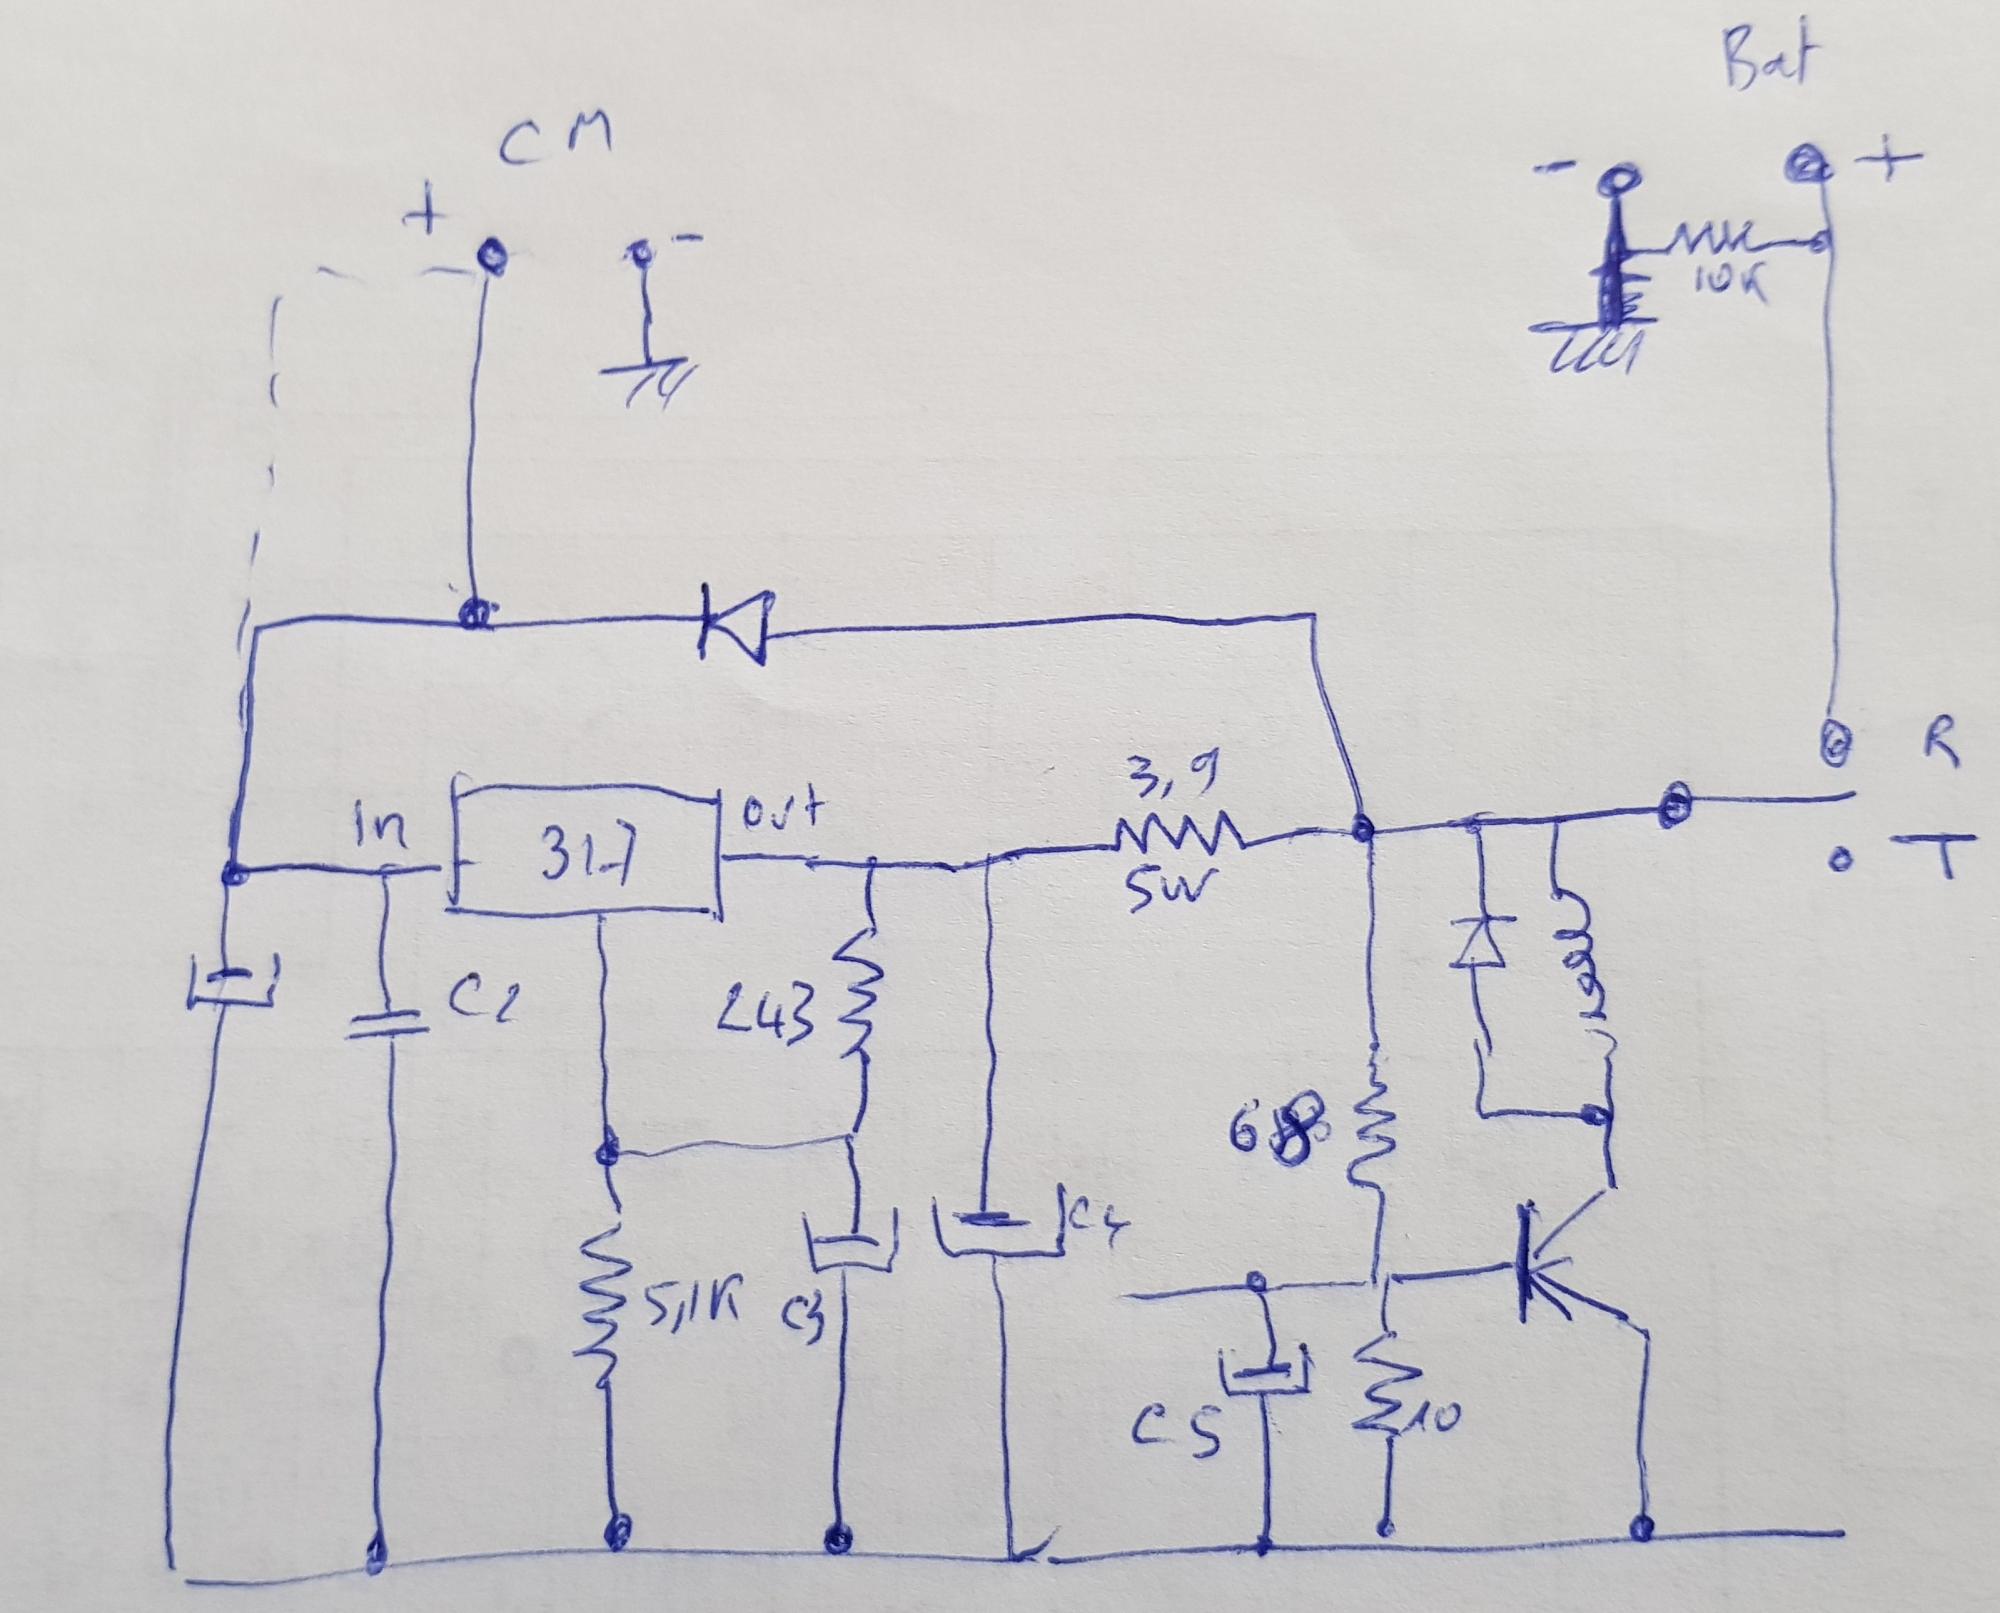 Bat
CM
+
-
-
+
10K
R
3,9
In
317
out
5W
T
C2
243
68
C4
5,1K
C3
C5
10